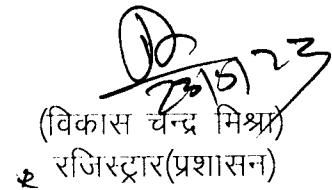 23/5/23
(विकास चन्द्र मिश्रा)
रजिस्ट्रार(प्रशासन)